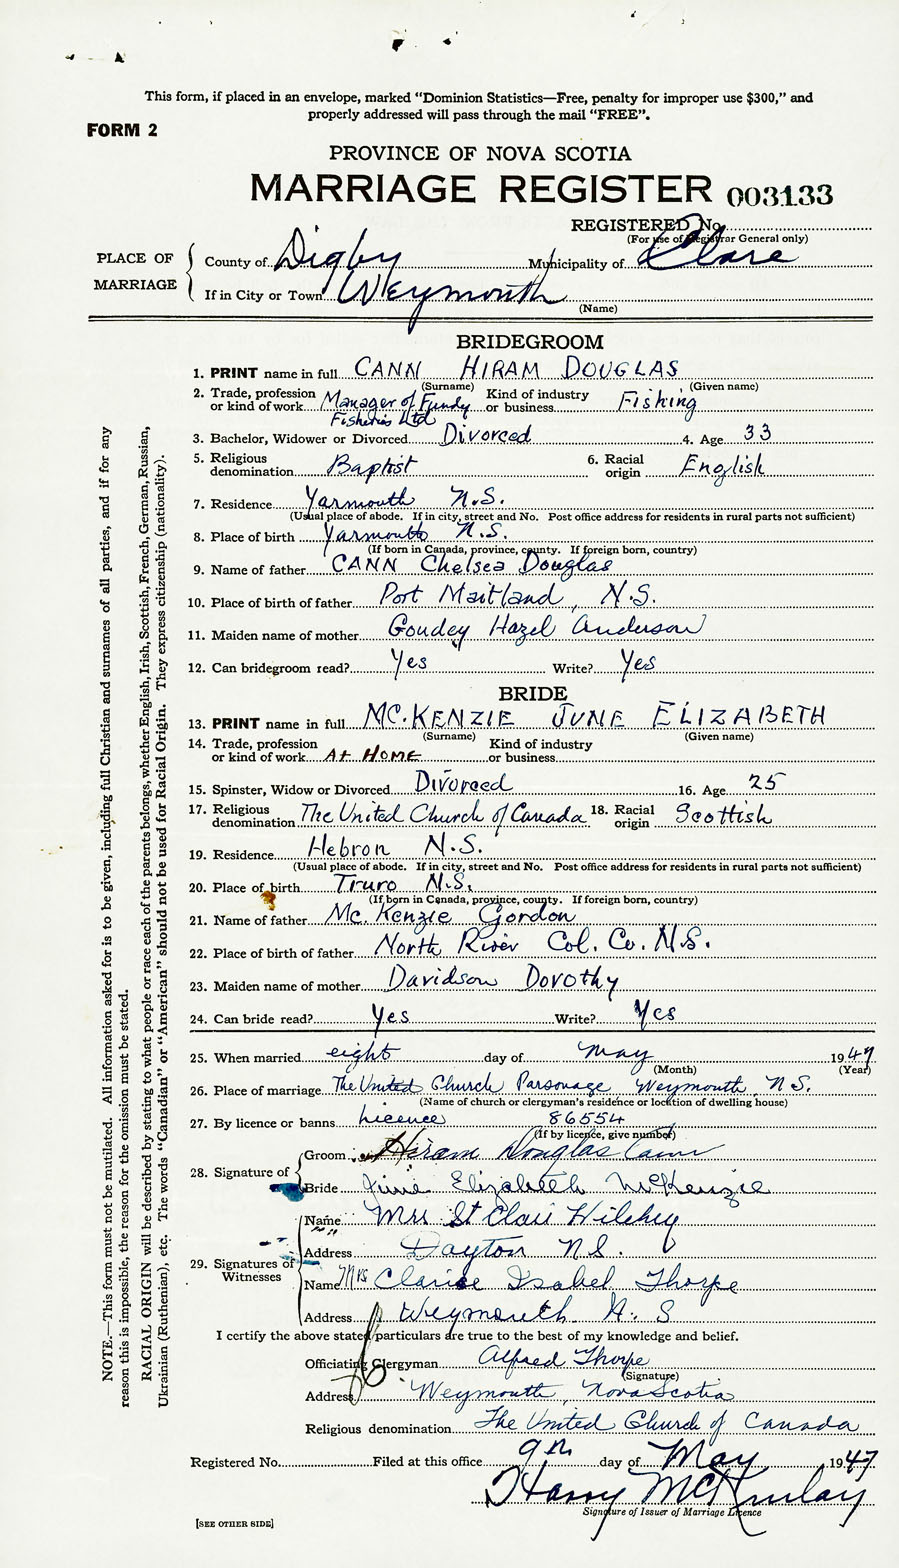 This form, if placed in an envelope, marked “Dominion Statistics—Free, penalty for improper use $300,” and
properly addressed will pass through the mail “FREE”.
FORM 2
PROVINCE OF NOVA SCOTIA
MARRIAGE REGISTER 003133
REGISTERED No.
(For use of Registrar General only)
PLACE OF MARRIAGE
County of Digby Municipality of Clare
If in City or Town Weymouth
(Name)
BRIDEGROOM
1. PRINT name in full CANN HIRAM DOUGLAS
(Surname) (Given name)
2. Trade, profession or kind of work Manager of Fundy Fisheries Ltd Kind of industry or business Fishing
3. Bachelor, Widower or Divorced Divorced 4. Age 33
5. Religious denomination Baptist 6. Racial origin English
7. Residence Yarmouth N.S.
(Usual place of abode. If in city, street and No. Post office address for residents in rural parts not sufficient)
8. Place of birth Yarmouth N.S.
(If born in Canada, province, county. If foreign born, country)
9. Name of father CANN Chelsea Douglas
10. Place of birth of father Port Maitland, N.S.
11. Maiden name of mother Goudey Hazel Anderson
12. Can bridegroom read? Yes Write? Yes
BRIDE
13. PRINT name in full MC.KENZIE JUNE ELIZABETH
(Surname) (Given name)
14. Trade, profession or kind of work At HOME Kind of industry or business
15. Spinster, Widow or Divorced Divorced 16. Age 25
17. Religious denomination The United Church of Canada 18. Racial origin Scottish
19. Residence Hebron N.S.
(Usual place of abode. If in city, street and No. Post office address for residents in rural parts not sufficient)
20. Place of birth Truro N.S.
(If born in Canada, province, county. If foreign born, country)
21. Name of father Mc Kenzie Gordon
22. Place of birth of father North River Col. Co. N.S.
23. Maiden name of mother Davidson Dorothy
24. Can bride read? Yes Write? Yes
25. When married eight day of May 1947
(Month) (Year)
26. Place of marriage The United Church Parsonage Weymouth, N.S.
(Name of church or clergyman's residence or location of dwelling house)
27. By licence or banns Licence 86554
(If by licence, give number)
28. Signature of
Groom Hiram Douglas Cann
Bride June Elizabeth McKenzie
29. Signatures of Witnesses
Name Mrs St Clair
Address Dayton N.S.
Name Mrs Clarice Isabel Thorpe
Address Weymouth N. S
I certify the above stated particulars are true to the best of my knowledge and belief.
Officiating Clergyman Alfred Thorpe
(Signature)
Address Weymouth, Nova Scotia
Religious denomination The United Church of Canada
Registered No. Filed at this office 9th day of May 1947
Harry McKinlay
Signature of Issuer of Marriage Licence
[SEE OTHER SIDE]
NOTE.—This form must not be mutilated. All information asked for is to be given, including full Christian and surnames of all parties, and if for any
reason this is impossible, the reason for the omission must be stated.
RACIAL ORIGIN will be described by stating to what people or race each of the parents belongs, whether English, Irish, Scottish, French, German, Russian,
Ukrainian (Ruthenian), etc. The words “Canadian” or “American” should not be used for Racial Origin. They express citizenship (nationality).